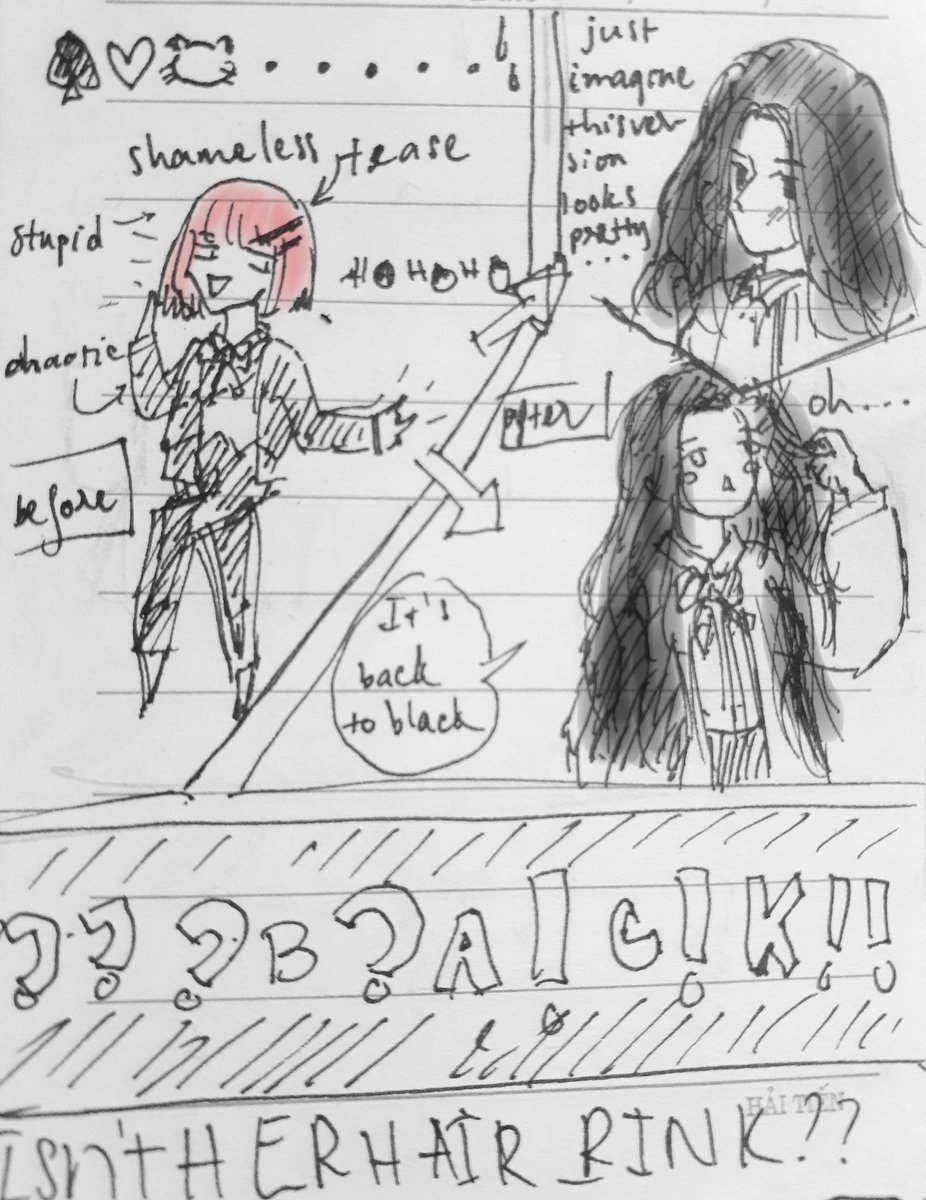 just
imagine
thisver-
sion
looks
pretty
...
shameless tease
stupid
HOHOHO
chaotic
before
after
oh...
It's
back
to black
???B?A!C!K!!
HẢI TIẾN
Isn't HER HAIR PINK??